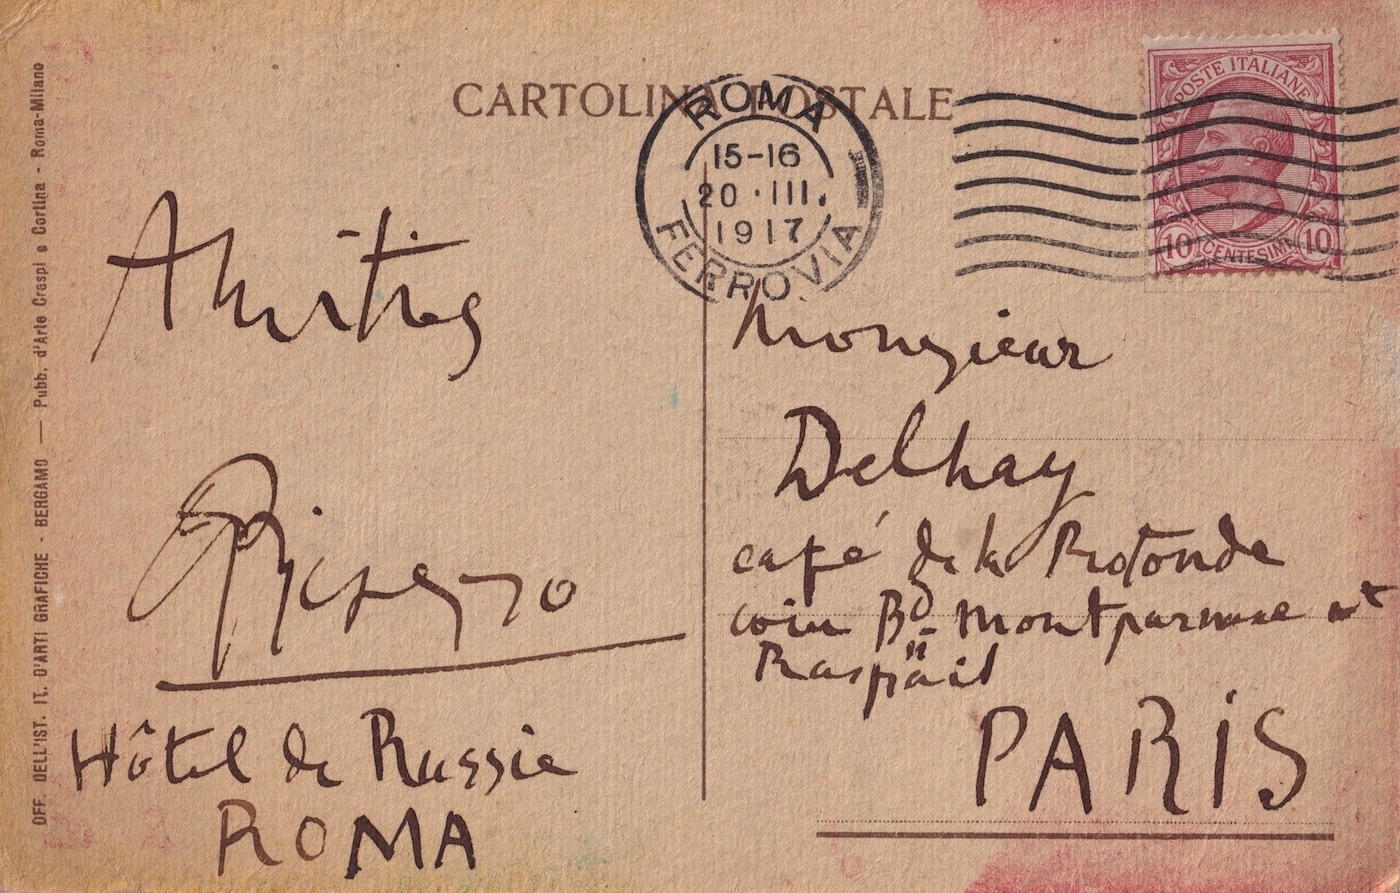 CARTOLINA POSTALE
ROMA
15-16
20 · III.
1917
FERROVIA
POSTE ITALIANE
10 CENTESIMI 10
OFF. DELL'IST. IT. D'ARTI GRAFICHE - BERGAMO — Pubb. d'Arte Crespi e Cortina - Roma-Milano
Amitiés
Picasso
Hôtel de Russie
ROMA
Monsieur
Delhay
café de la Rotonde
coin Bd Montparnasse et
Bd Raspail
PARIS